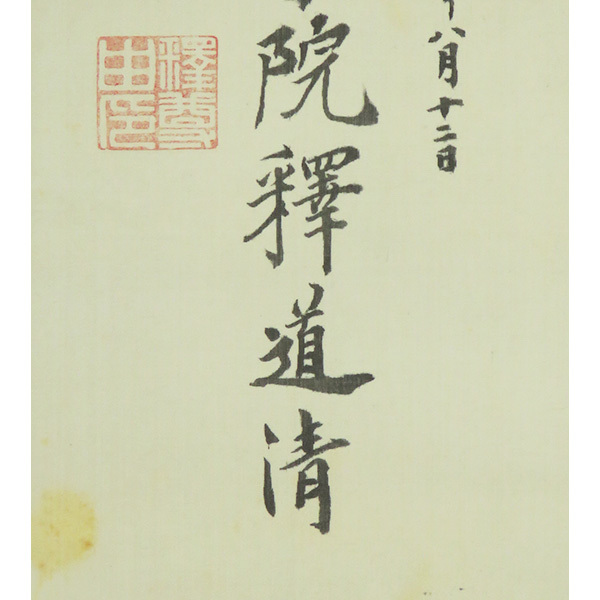 八月十二日
院釋道清
釋
由印